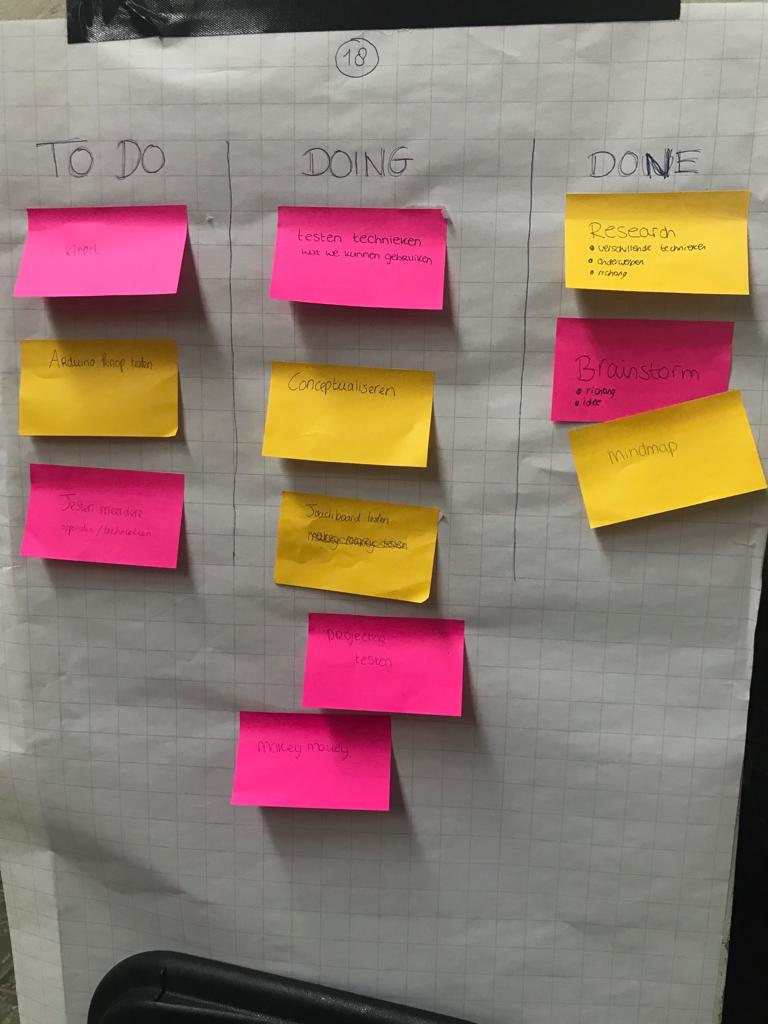 18
TO DO
DOING
DONE
kinect
Arduino knop testen
Testen meerdere
opperden/technieken
testen technieken
wat we kunnen gebruiken
Conceptualiseren
Touchboard testen
makey makey testen
projector
testen
makey makey
Research
• verschillende technieken
• onderwerpen
• richting
Brainstorm
• richting
• idee
mindmap